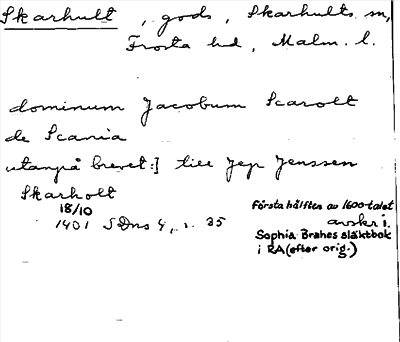 Skarhult, gods, Skarhults sn,
Frosta hd, Malm. l.
dominum Jacobum Scarolt
de Scania
utanpå brevet:] till Jep Jenssen
Skarholt
18/10
1401 SDns 4, s. 35
första hälften av 1600-talet
avskr i.
Sophia Brahes släktbok
i RA (efter orig.)